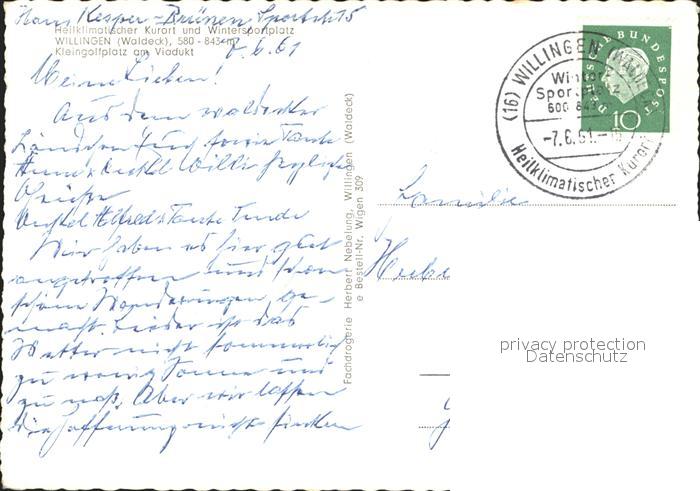 Haus Kesper-Brünen Sportstr. 15
Heilklimatischer Kurort und Wintersportplatz
WILLINGEN (Waldeck), 580 - 843 m
Kleingolfplatz am Viadukt
7.6.61
Meine Lieben!
Aus dem waldecker
Ländchen Euch sowie Tante
Onkel Willi
Grüße
Onkel Alfred & Tante Trude
Wir haben es hier gut
angetroffen und schon
schöne Wanderungen ge-
macht. Leider ist das
Wetter nicht sommerlich
zu wenig Sonne und
zu naß. Aber wir lassen
die Hoffnung nicht sinken
Fachdrogerie Herbert Nebelung, Willingen (Waldeck)
e Bestell-Nr. Wigen 309
(16) WILLINGEN
Winter
Sportplatz
600 843
-7.6.61.
Heilklimatischer Kurort
DEUTSCHE BUNDESPOST
10
Familie
privacy protection
Datenschutz